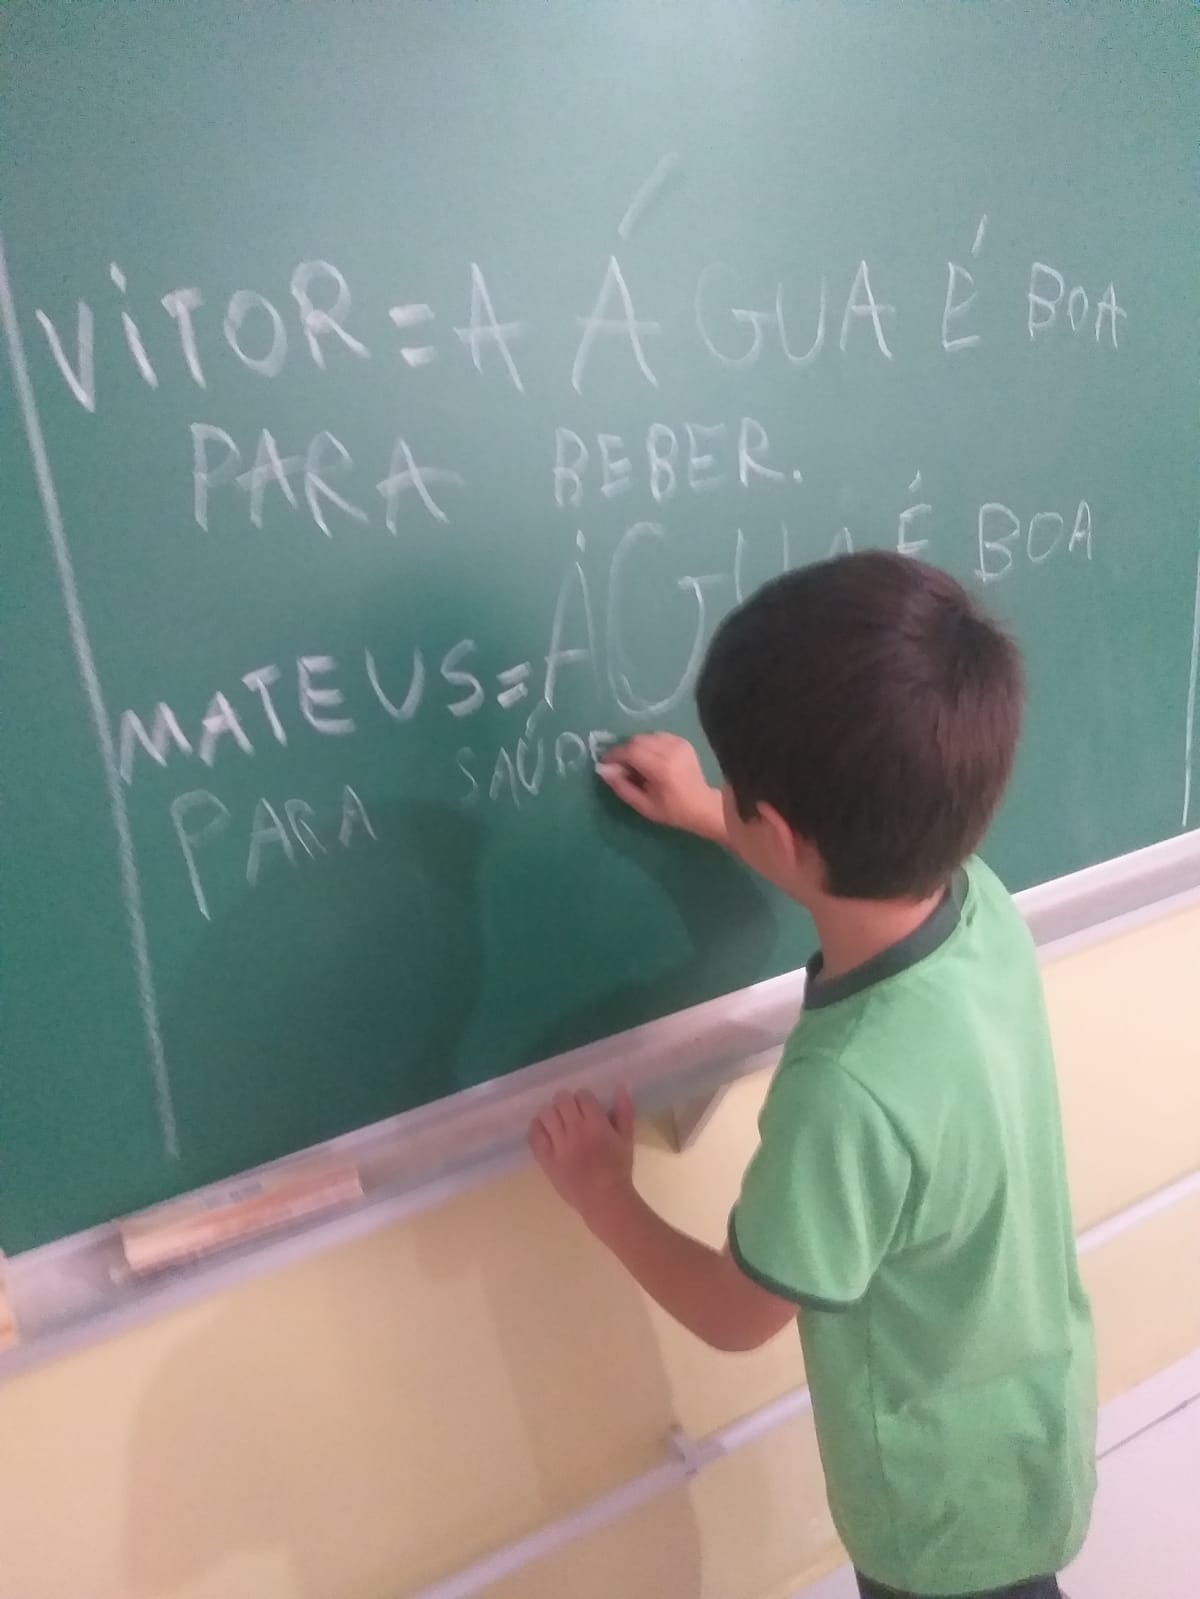 VITOR = A ÁGUA É BOA
PARA BEBER.
MATEUS = ÁGUA É BOA
PARA SAÚDE